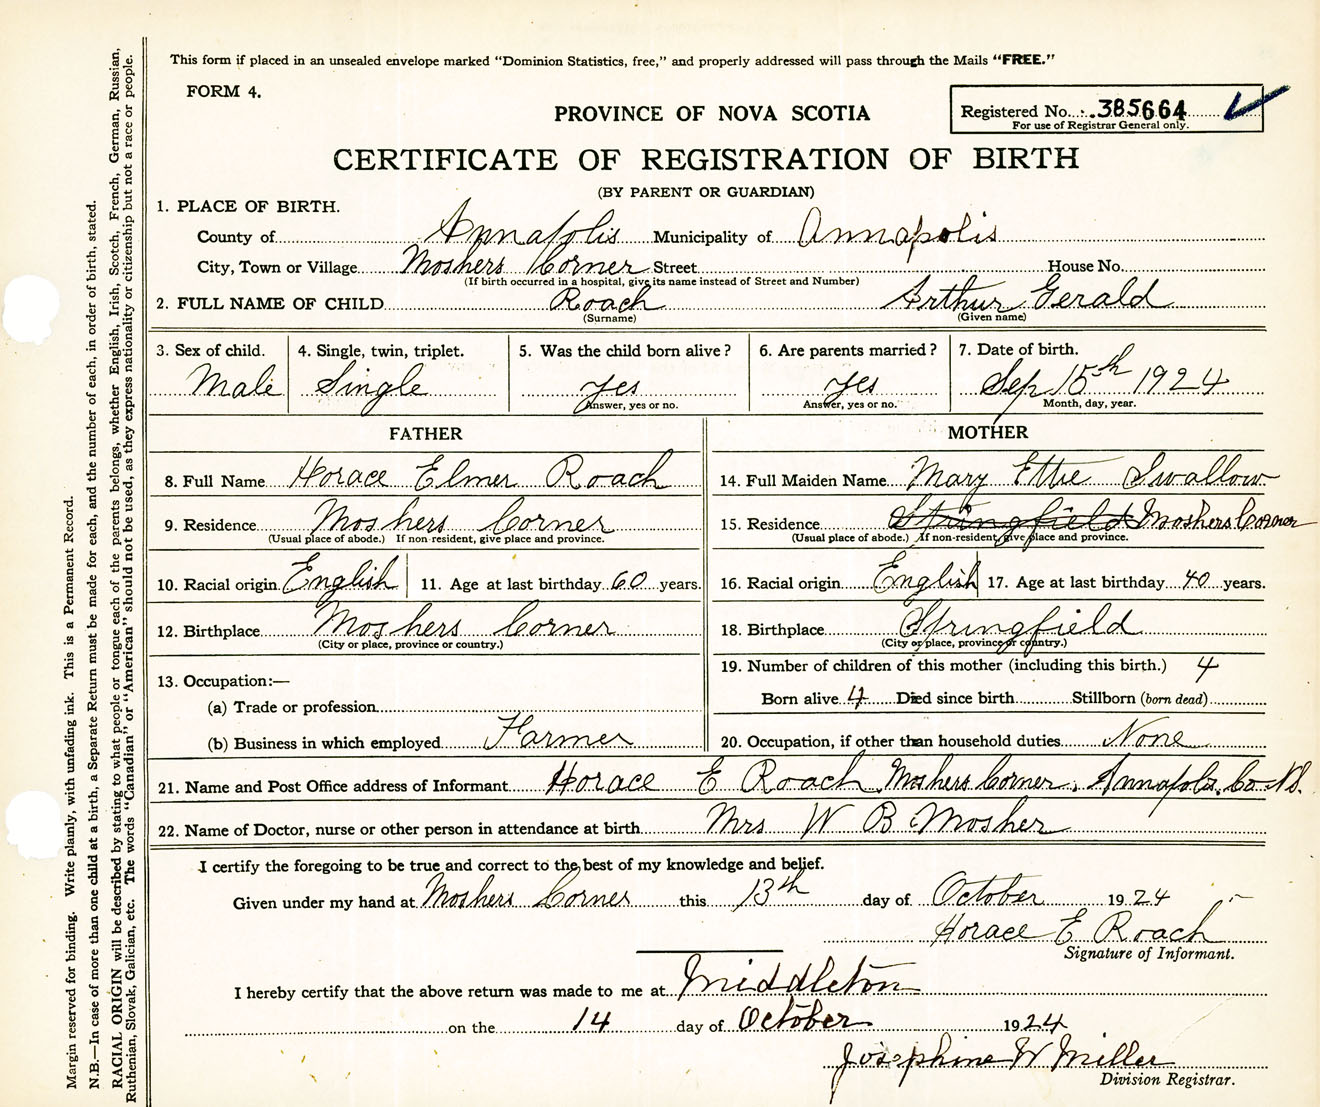 This form if placed in an unsealed envelope marked "Dominion Statistics, free," and properly addressed will pass through the Mails "FREE."
FORM 4.
PROVINCE OF NOVA SCOTIA
Registered No. 385664
For use of Registrar General only.
CERTIFICATE OF REGISTRATION OF BIRTH
(BY PARENT OR GUARDIAN)
1. PLACE OF BIRTH.
County of Annapolis Municipality of Annapolis
City, Town or Village Moshers Corner Street House No.
(If birth occurred in a hospital, give its name instead of Street and Number)
2. FULL NAME OF CHILD Roach Arthur Gerald
(Surname) (Given name)
3. Sex of child. 4. Single, twin, triplet. 5. Was the child born alive? 6. Are parents married? 7. Date of birth.
Male Single yes yes Sep 15th 1924
Answer, yes or no. Answer, yes or no. Month, day, year.
FATHER MOTHER
8. Full Name Horace Elmer Roach 14. Full Maiden Name Mary Ettie Swallow
9. Residence Moshers Corner 15. Residence Springfield Moshers Corner
(Usual place of abode.) If non-resident, give place and province. (Usual place of abode.) If non-resident, give place and province.
10. Racial origin English 11. Age at last birthday 60 years. 16. Racial origin English 17. Age at last birthday 40 years.
12. Birthplace Moshers Corner 18. Birthplace Springfield
(City or place, province or country.) (City or place, province or country.)
13. Occupation:— 19. Number of children of this mother (including this birth.) 4
(a) Trade or profession Born alive 4 Died since birth Stillborn (born dead)
(b) Business in which employed Farmer 20. Occupation, if other than household duties None
21. Name and Post Office address of Informant Horace E Roach Moshers Corner, Annapolis Co N.S.
22. Name of Doctor, nurse or other person in attendance at birth Mrs W B Mosher
I certify the foregoing to be true and correct to the best of my knowledge and belief.
Given under my hand at Moshers Corner this 13th day of October 1924
Horace E Roach
Signature of Informant.
I hereby certify that the above return was made to me at Middleton
on the 14 day of October 1924
Josephine W Miller
Division Registrar.
Margin reserved for binding. Write plainly, with unfading ink. This is a Permanent Record.
N.B.—In case of more than one child at a birth, a Separate Return must be made for each, and the number of each, in order of birth, stated.
RACIAL ORIGIN will be described by stating to what people or tongue each of the parents belongs, whether English, Irish, Scotch, French, German, Russian,
Ruthenian, Slovak, Galician, etc. The words "Canadian" or "American" should not be used, as they express nationality or citizenship but not a race or people.